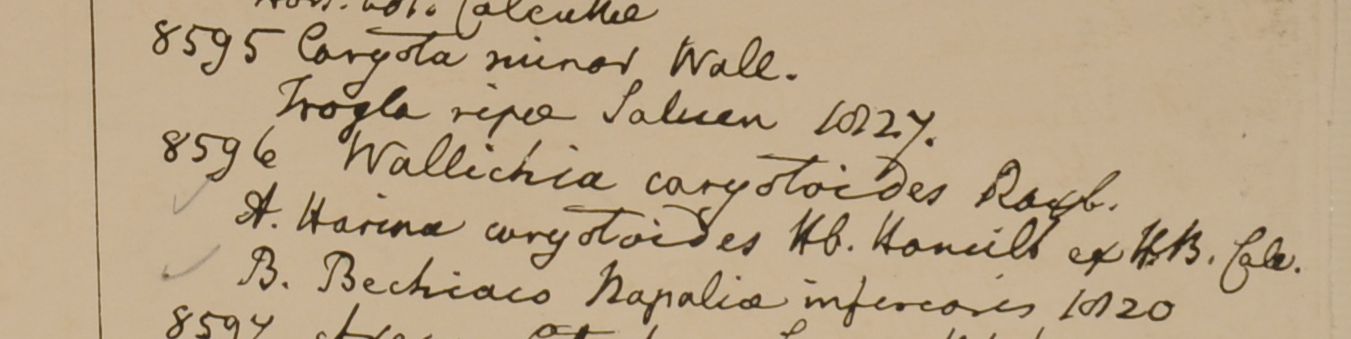 Hort. bot. Calcuttæ
8595 Caryota minor Wall.
Trogla ripæ Saluen 1827.
8596 Wallichia caryotoides Roxb.
A. Harina caryotoides Hb. Hamilt ex H.B. Calc.
B. Bechiaco Napaliæ inferioris 1820
8597